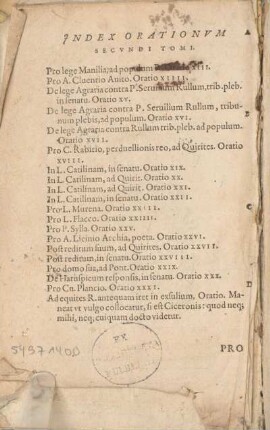 INDEX ORATIONVM
SECVNDI TOMI.
Pro lege Manilia, ad populum
Pro A. Cluentio Auito. Oratio XIIII.
De lege Agraria contra P. Seruilium Rullum, trib. pleb.
in senatu. Oratio XV.
De lege Agraria contra P. Seruilium Rullum, tribu-
num plebis, ad populum. Oratio XVI.
De lege Agraria contra Rullum trib. pleb. ad populum.
Oratio XVII.
Pro C. Rabirio, perduellionis reo, ad Quirites. Oratio
XVIII.
In L. Catilinam, in senatu. Oratio XIX.
In L. Catilinam, ad Quirit. Oratio XX.
In L. Catilinam, ad Quirit. Oratio XXI.
In L. Catilinam, in senatu. Oratio XXII.
Pro L. Murena. Oratio XXIII.
Pro L. Flacco. Oratio XXIIII.
Pro P. Sylla. Oratio XXV.
Pro A. Licinio Archia, poeta. Oratio XXVI.
Post reditum suum, ad Quirites. Oratio XXVII.
Post reditum, in senatu. Oratio XXVIII.
Pro domo sua, ad Pont. Oratio XXIX.
De Haruspicum responsis, in senatu. Oratio XXX.
Pro Cn. Plancio. Oratio XXXI.
Ad equites R. antequam iret in exsilium. Oratio. Ma-
net vt vulgo collocatur, si est Ciceronis: quod neq;
mihi, neq; cuiquam docto videtur.
EX
PRO